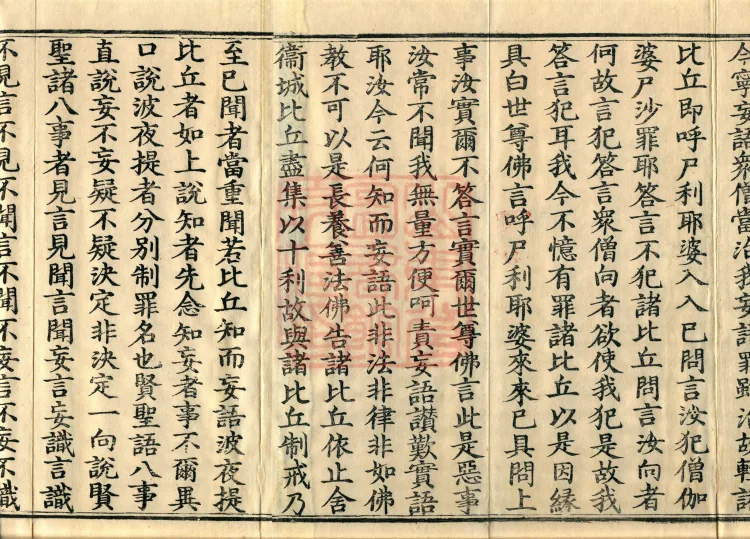 今寧妄語衆僧當治我妄語罪雖治故輕
比丘即呼尸利耶婆入入已問言汝犯僧伽
婆尸沙罪耶答言不犯諸比丘問言汝向者
何故言犯答言衆僧向者欲使我犯是故我
答言犯耳我今不憶有罪諸比丘以是因緣
具白世尊佛言呼尸利耶婆來來已具問上
事汝實爾不答言實爾世尊佛言此是惡事
汝常不聞我無量方便呵責妄語讃歎實語
耶汝今云何知而妄語此非法非律非如佛
教不可以是長養善法佛告諸比丘依止舍
衞城比丘盡集以十利故與諸比丘制戒乃
至已聞者當重聞若比丘知而妄語波夜提
比丘者如上說知者先念知妄者事不爾異
口說波夜提者分别制罪名也賢聖語八事
直說妄不妄疑不疑決定非決定一向說賢
聖諸八事者見言見聞言聞妄言妄識言識
不見言不見不聞言不聞不妄言不妄不識